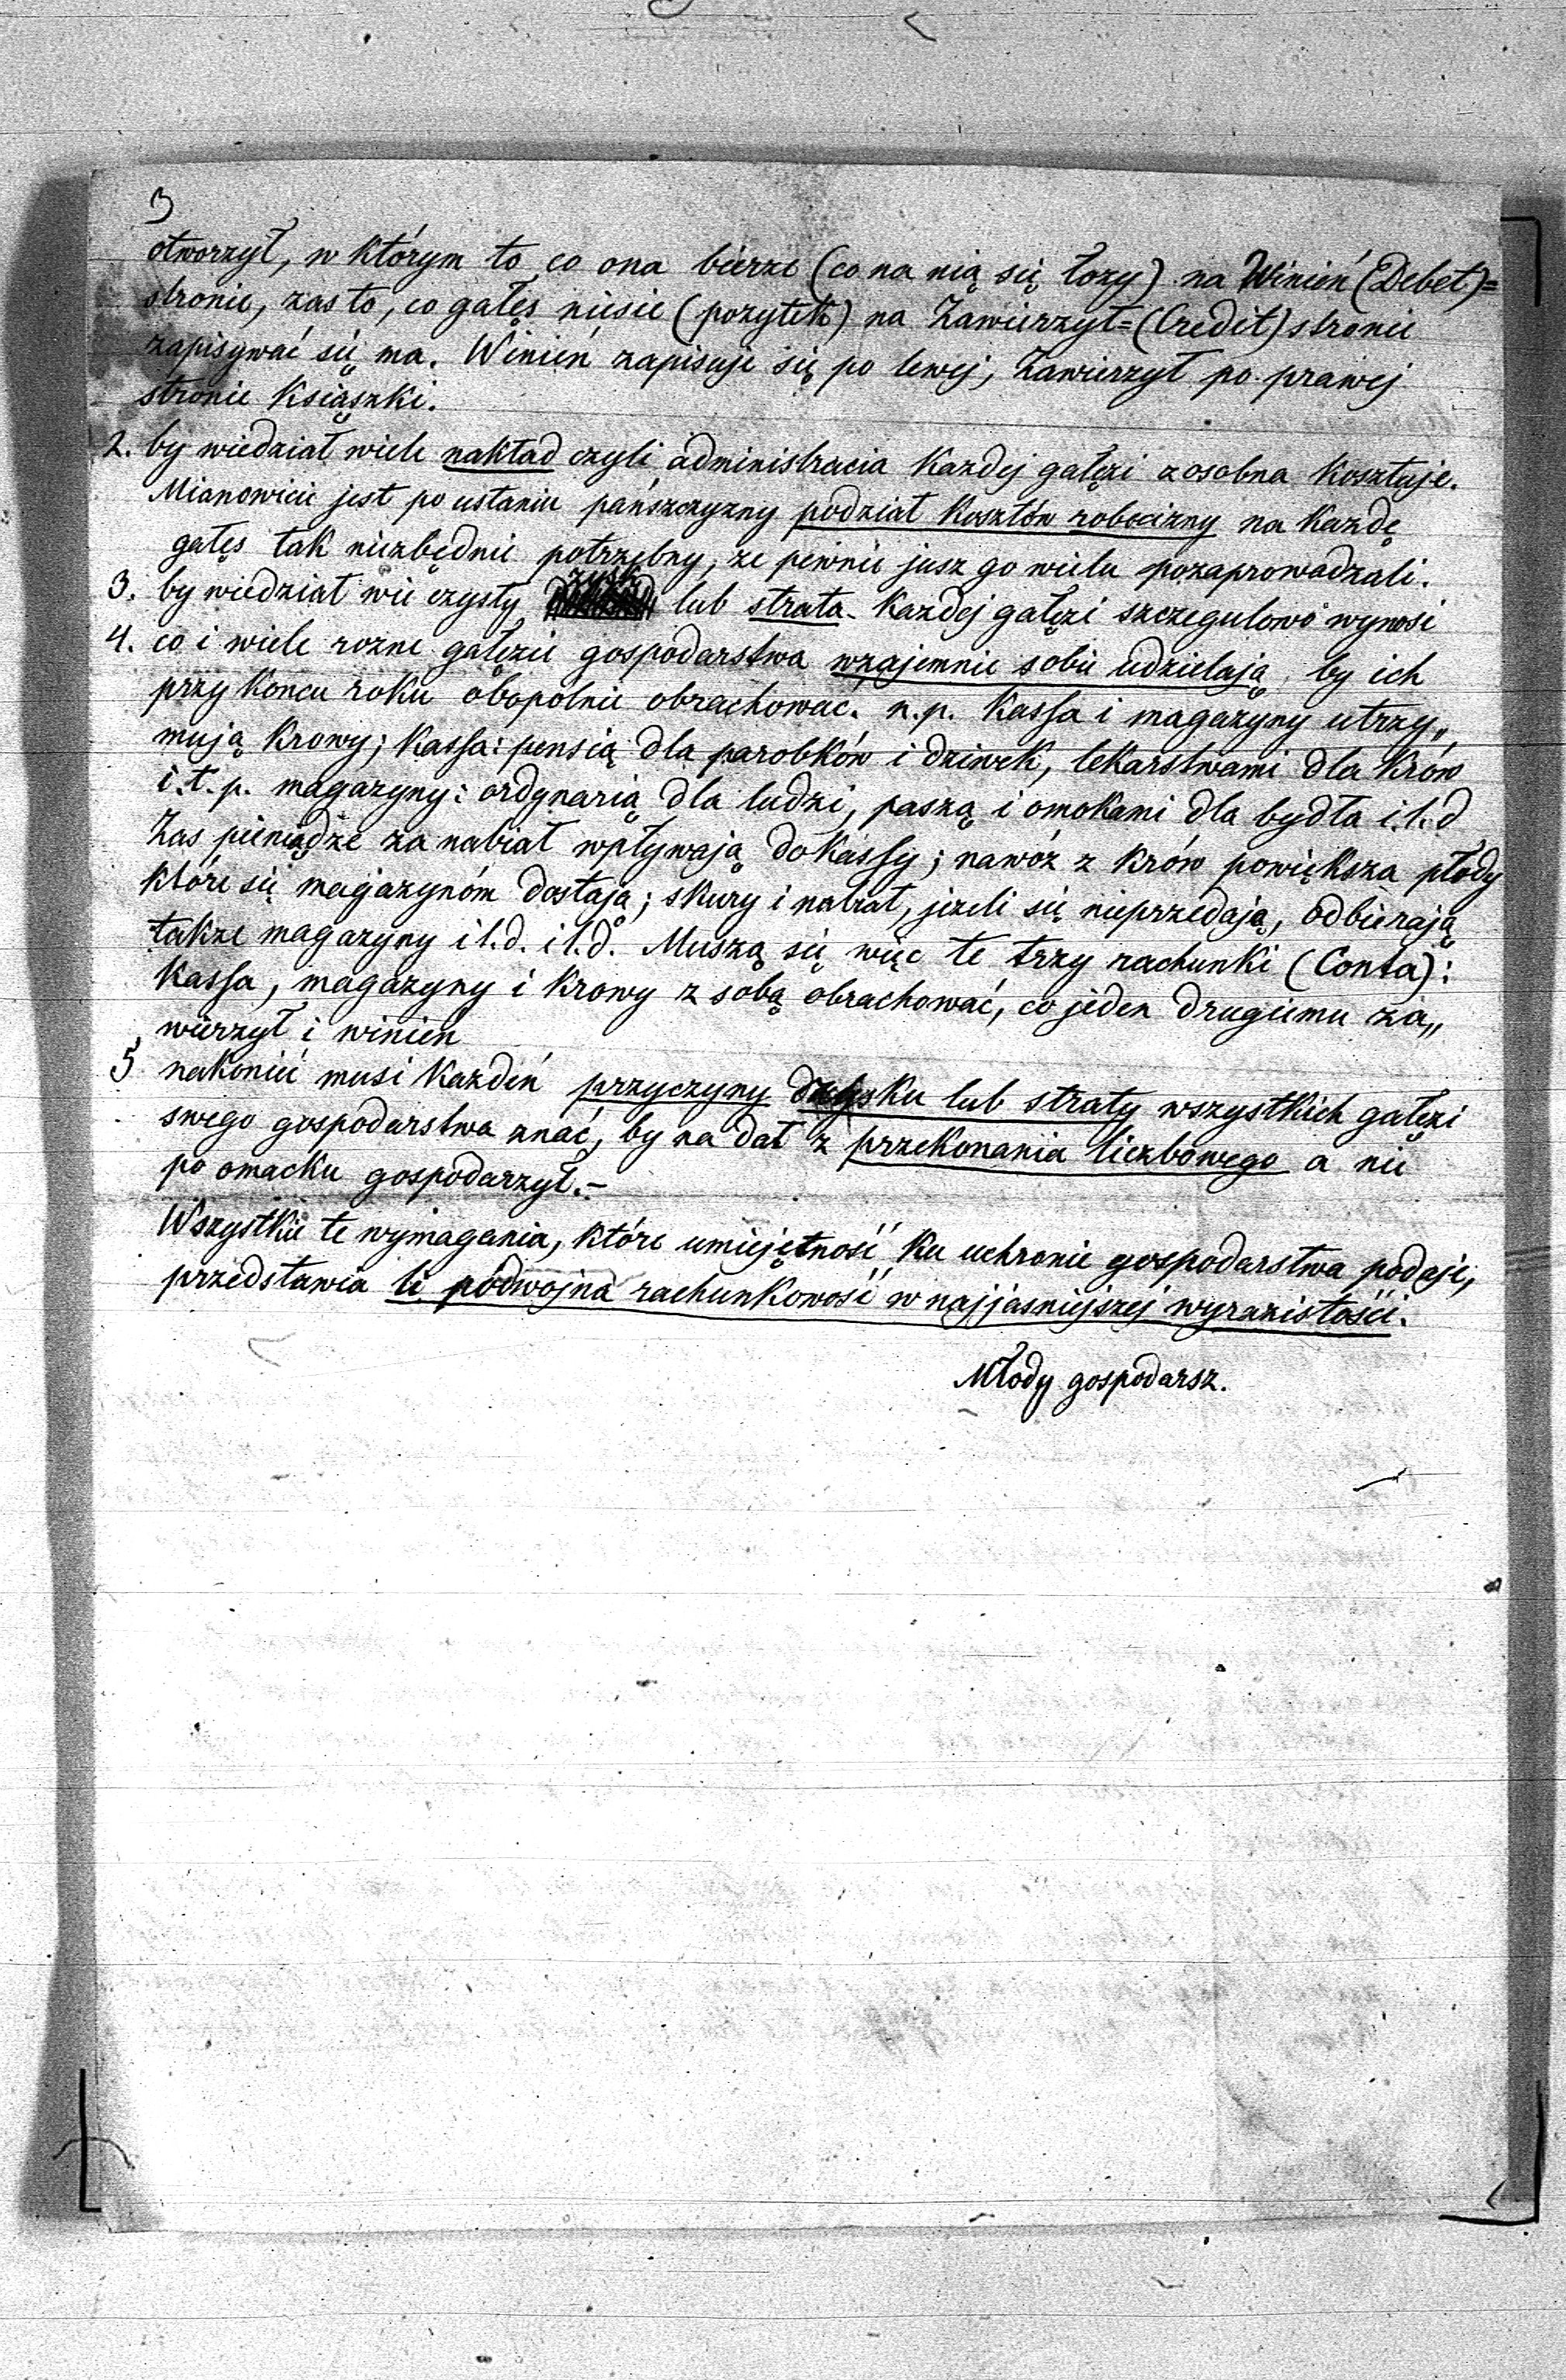 3
otworzył, w którym to co ona bierze (co na nią się łozy) na Winien (Debet)=
stronie, zas to, co gałęs niesie (pozytek) na Zawierzył=(Credit) stronie
zapisywać się ma. Winień zapisuje się po lewej, Zawierzył po prawej
stronie Ksiąszki.
2. by wiedział wiele nakład czyli administracia Kazdej gałęzi zosobna Kosztuje.
Mianowicie jest po ustaniu pańszczyzny podział Kosztów robocizny na Kazdę
gałęs tak niezbędnie potrzebny, ze pewnie jusz go wielu pozaprowadzali.
3. by wiedział wie czysty zysk lub strata Kazdej gałęzi szczegulowo wynosi
4. co i wiele rozne gałęzie gospodarstwa wzajemnie sobie udzielają, by ich
przy Koncu roku obopolnie obrachować. n.p. Kassa i magazyny utrzy„
mują Krowy; Kassa: pensią dla parobków i dziwek, lekarstwami dla Krów
i.t.p. magazyny: ordynarią dla ludzi, paszą i omokami dla bydła i.t.d
Zas pieniądze za nabiał wpływają do Kassy; nawóz z Krów powiększa płody
które się magazynóm dostają; skury i nabiał, jezeli się nieprzedają, odbierają
takze magazyny i t.d. i t.d. Muszą się więc te trzy rachunki (Conta):
Kassa, magazyny i Krowy z sobą obrachować, co jeden drugiemu za„
wierzył i winien
5 nakonieć musi Kazdeń przyczyny zysku lub straty wszystkich gałęzi
swego gospodarstwa znać, by na dal z przekonania liczbowego a nie
po omacku gospodarzył.-
Wszystkie te wymagania, które umiejętność Ku uchronie gospodarstwa podaje,
przedstawia li podwojna rachunkowość w najjasniejszej wyrazistości.
Młody gospodarsz.